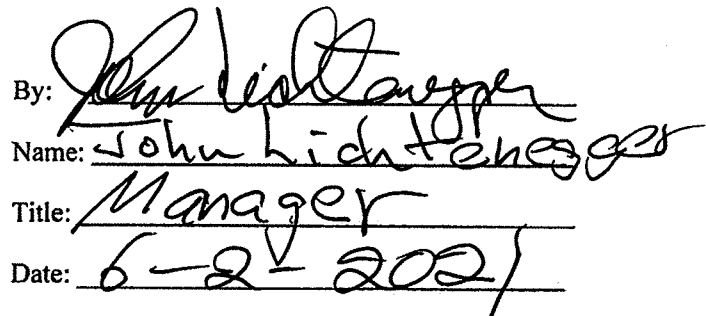 By: John Lichtenegger
Name: John Lichtenegger
Title: Manager
Date: 6-2-2021